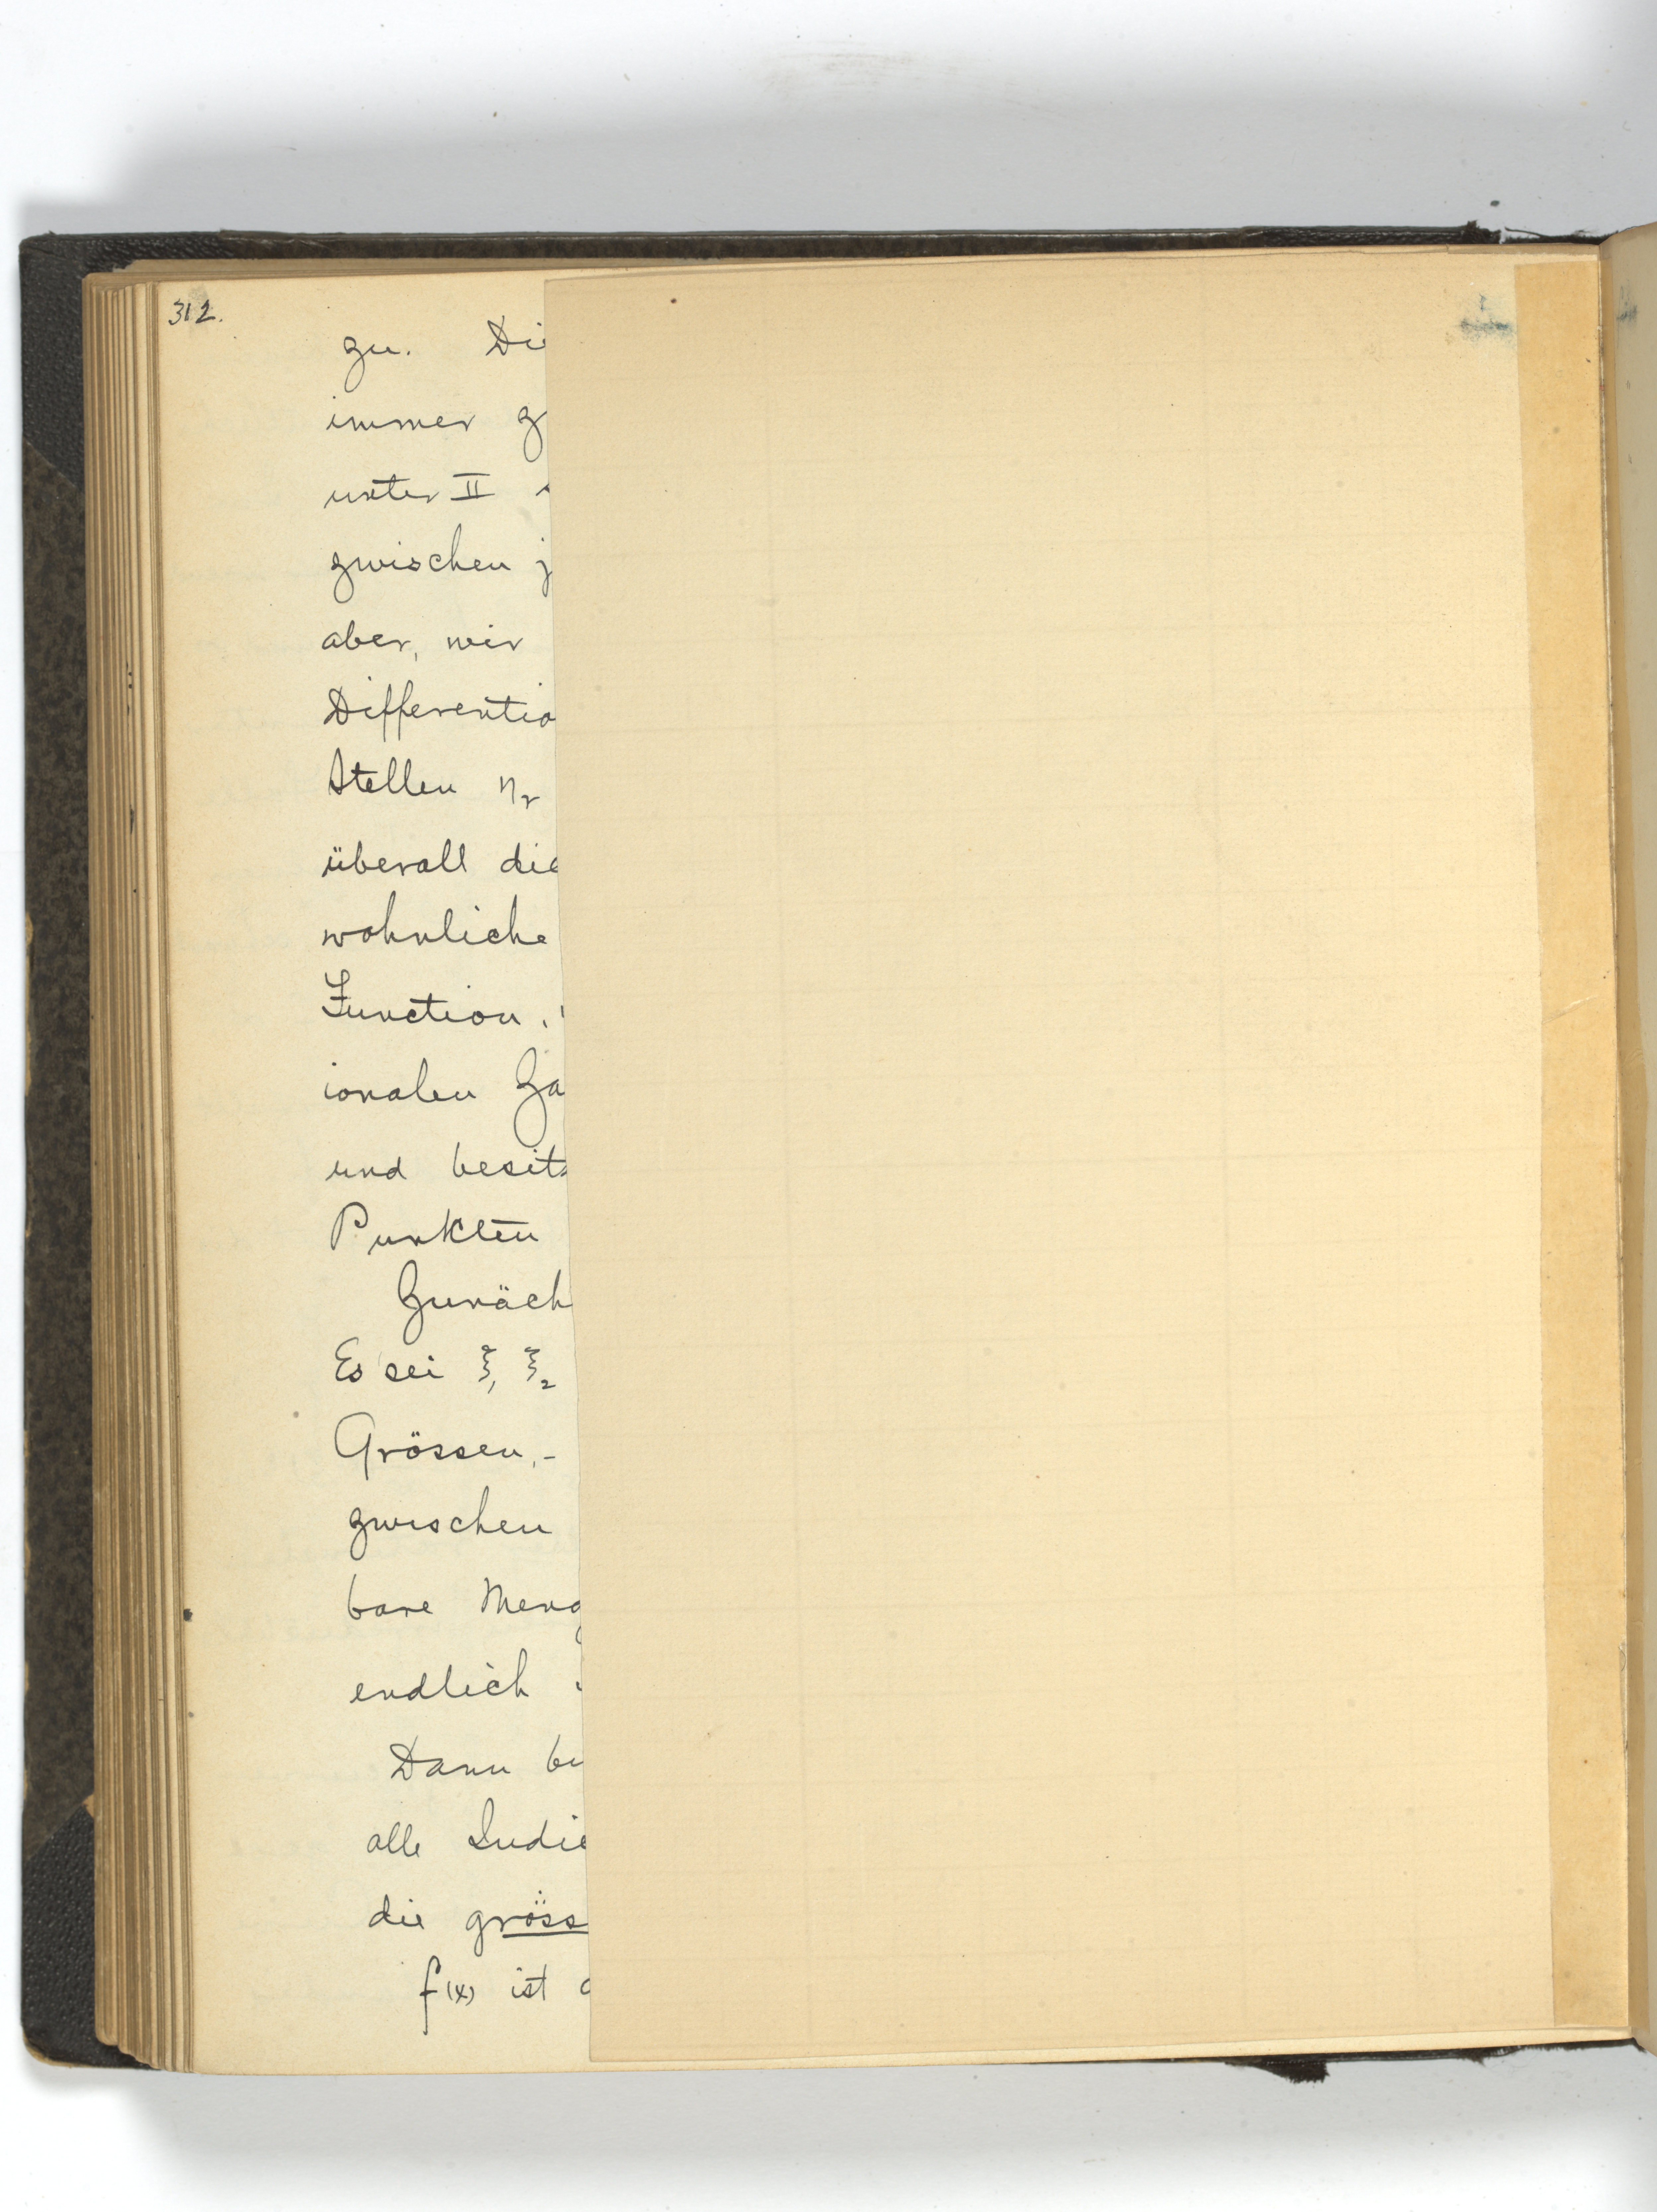 312.
zu. Di
immer g
unter II
zwischen j
aber, wir
Differentia
Stellen η_r
überall die
wohnliche
Function,
ionalen Za
und besitz
Punkten
Zunäch
Es sei ξ₁ ξ₂
Grössen,-
zwischen
bare Meng
endlich
Dann be
alle Indic
die gröss
f(x) ist